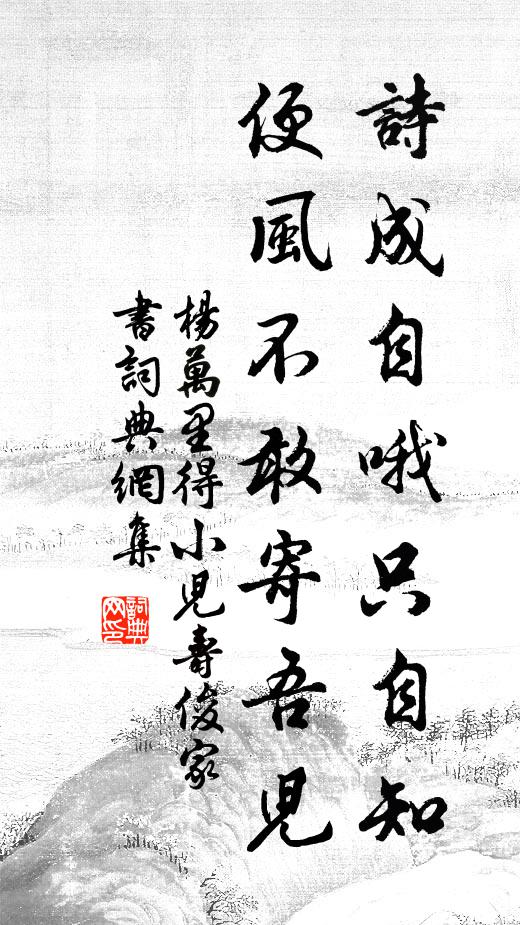 詩成自哦只自知
便風不敢寄吾兒
楊萬里得小兒壽俊家
書詞典網集
詞典
网印